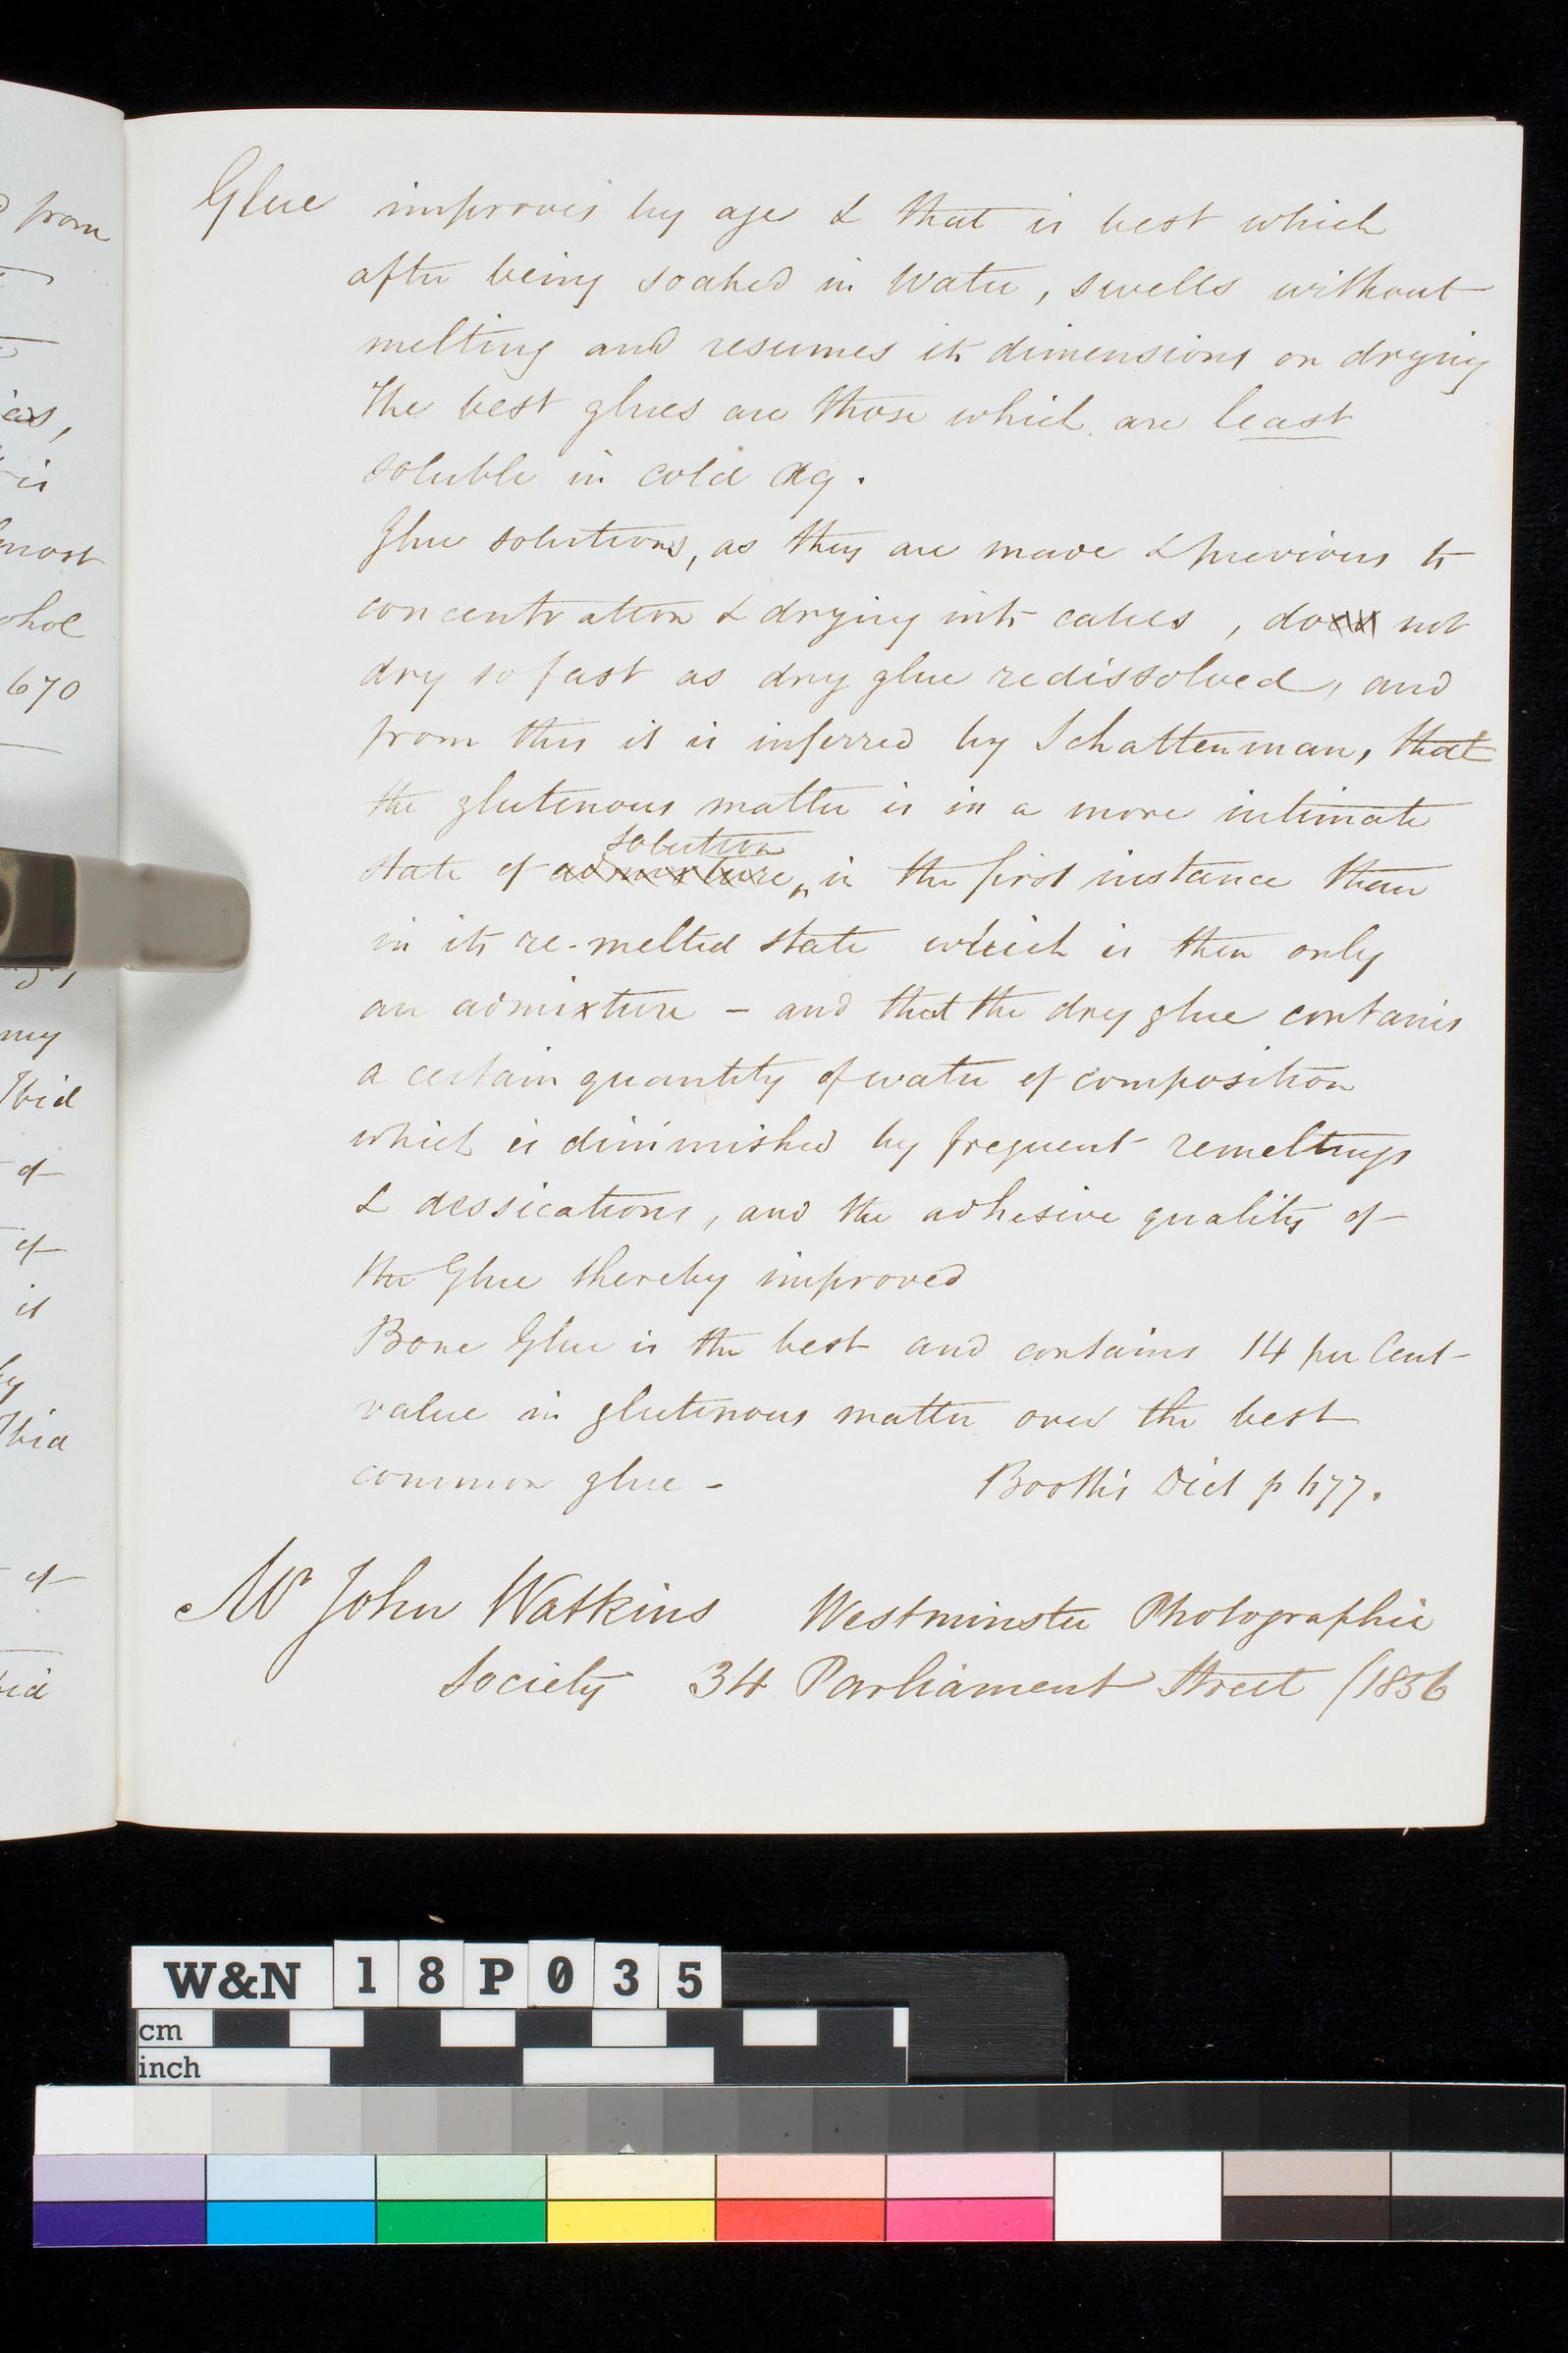 Glue improves by age & that is best which
after being soaked in Water, swells without
melting and resumes its dimensions on drying
The best glues are those which are least
soluble in cold Aq.
Glue solutions, as they are made & previous to
concentration & drying into cakes, does not
dry so fast as dry glue redissolved, and
from this it is inferred by Schattenman, that
the glutenous matter is in a more intimate
solution
state of admixture, in the first instance than
in its re-melted state which is then only
an admixture - and that the dry glue contains
a certain quantity of water of composition
which is diminished by frequent remeltings
& dessications, and the adhesive quality of
the Glue thereby improved
Bone Glue is the best and contains 14 per Cent
value in glutenous matter over the best
common glue - Booth's Dict p 677.
Mr John Watkins Westminster Photographic
Society 34 Parliament Street /1856
from
is
most
ohol
670
my
Ibid
of
of
it
Ibid
of
W&N 18P035
cm
inch